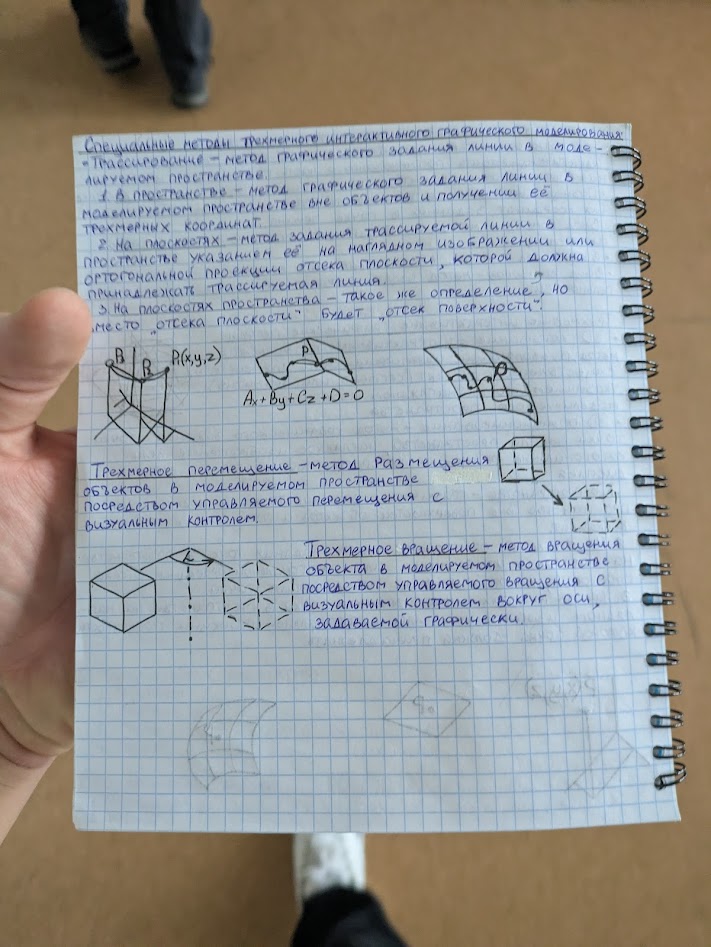 Специальные методы трехмерного интерактивного графического моделирования:
"Трассирование – метод графического задания линии в моде-
лируемом пространстве.
1. В пространстве – метод графического задания линии в
моделируемом пространстве вне объектов и получении её
трехмерных координат.
2. На плоскостях – метод задания трассируемой линии в
пространстве указанием её на наглядном изображении или
ортогональной проекции отсека плоскости, которой должна
принадлежать трассируемая линия.
3. На плоскостях пространства – такое же определение, но
вместо „отсека плоскости" будет „отсек поверхности".
P P Pi(x,y,z)
P
Ax+By+Cz+D=0
Трехмерное перемещение – метод размещения
объектов в моделируемом пространстве
посредством управляемого перемещения с
визуальным контролем.
Трехмерное вращение – метод вращения
объекта в моделируемом пространстве
посредством управляемого вращения с
визуальным контролем вокруг оси,
задаваемой графически.